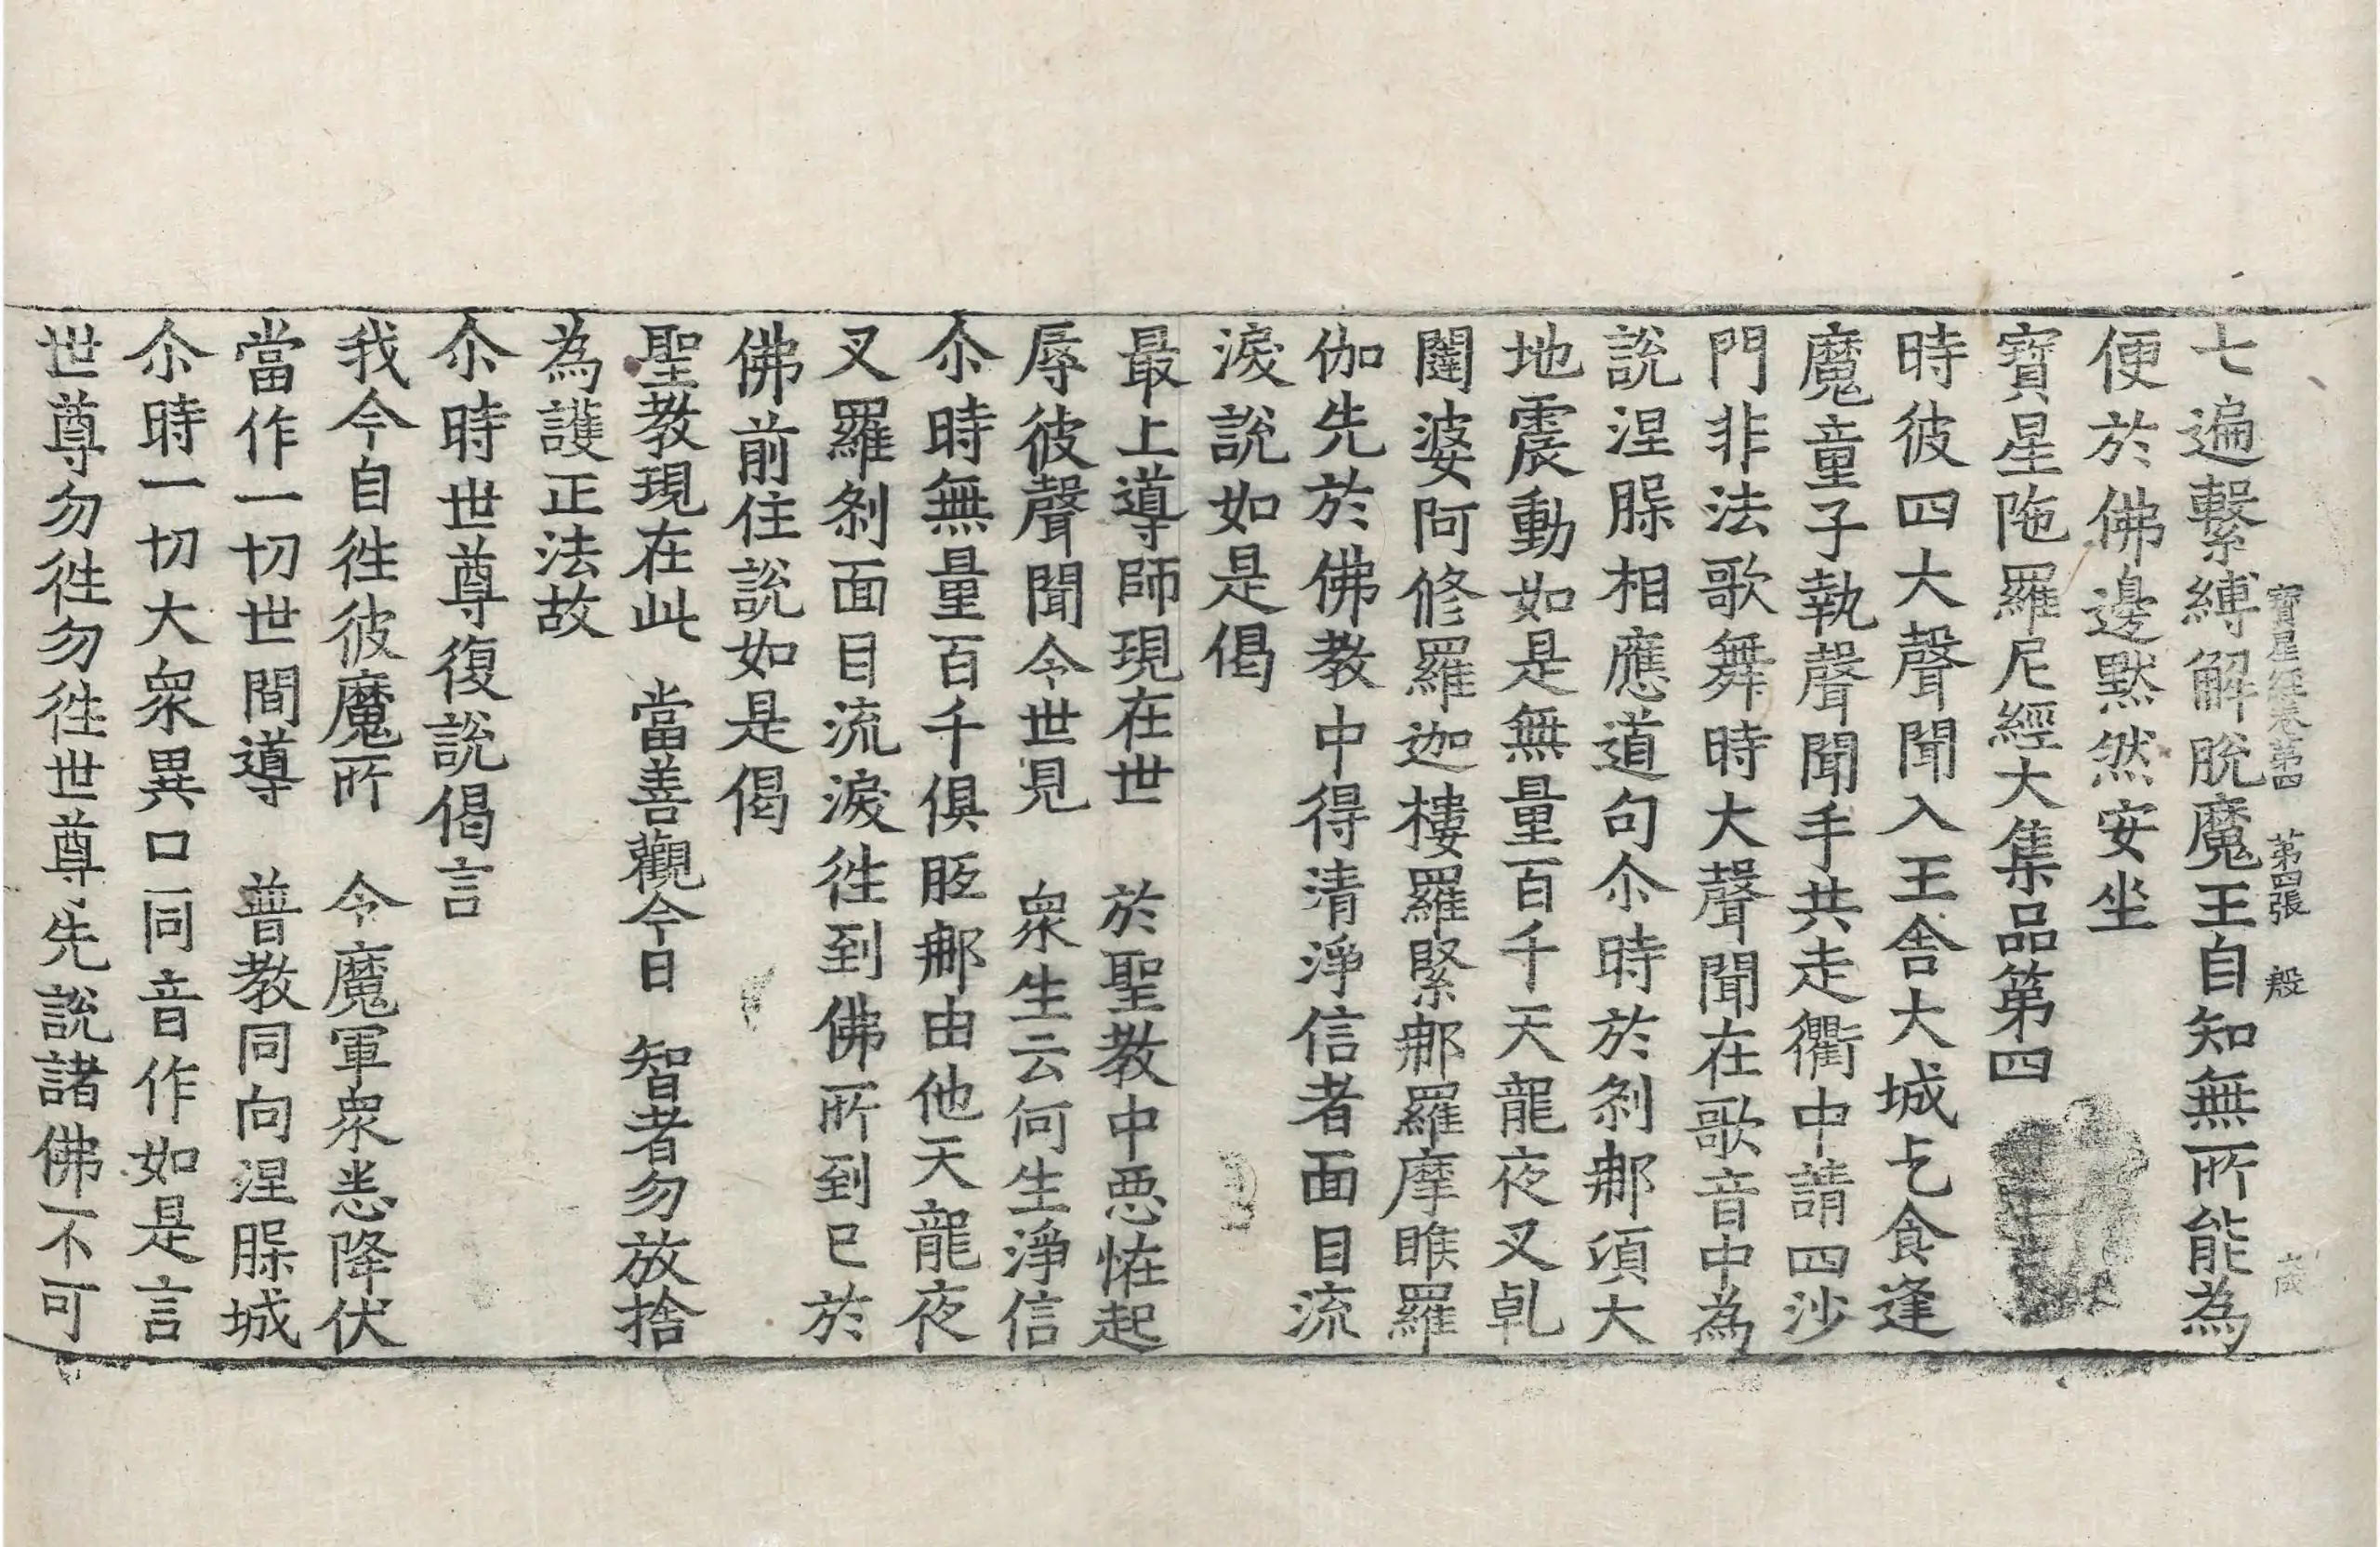 寶星經卷第四　第四張　殷
七遍繫縛解脫魔王自知無所能為
便於佛邊默然安坐
寶星陁羅尼經大集品第四
時彼四大聲聞入王舍大城乞食逢
魔童子執聲聞手共走衢中請四沙
門非法歌舞時大聲聞在歌音中為
說涅槃相應道句尒時於剎那須大
地震動如是無量百千天龍夜叉乹
闥婆阿修羅迦樓羅緊那羅摩睺羅
伽先於佛教中得清淨信者面目流
淚說如是偈
最上導師現在世　於聖教中惡恠起
辱彼聲聞令世見　衆生云何生淨信
尒時無量百千俱胝那由他天龍夜
叉羅剎面目流淚徃到佛所到已於
佛前住說如是偈
聖教現在此　當善觀今日　智者勿放捨
為護正法故
尒時世尊復說偈言
我今自徃彼魔所　令魔軍衆悉降伏
當作一切世間導　普教同向涅槃城
尒時一切大衆異口同音作如是言
世尊勿徃勿徃世尊先說諸佛不可